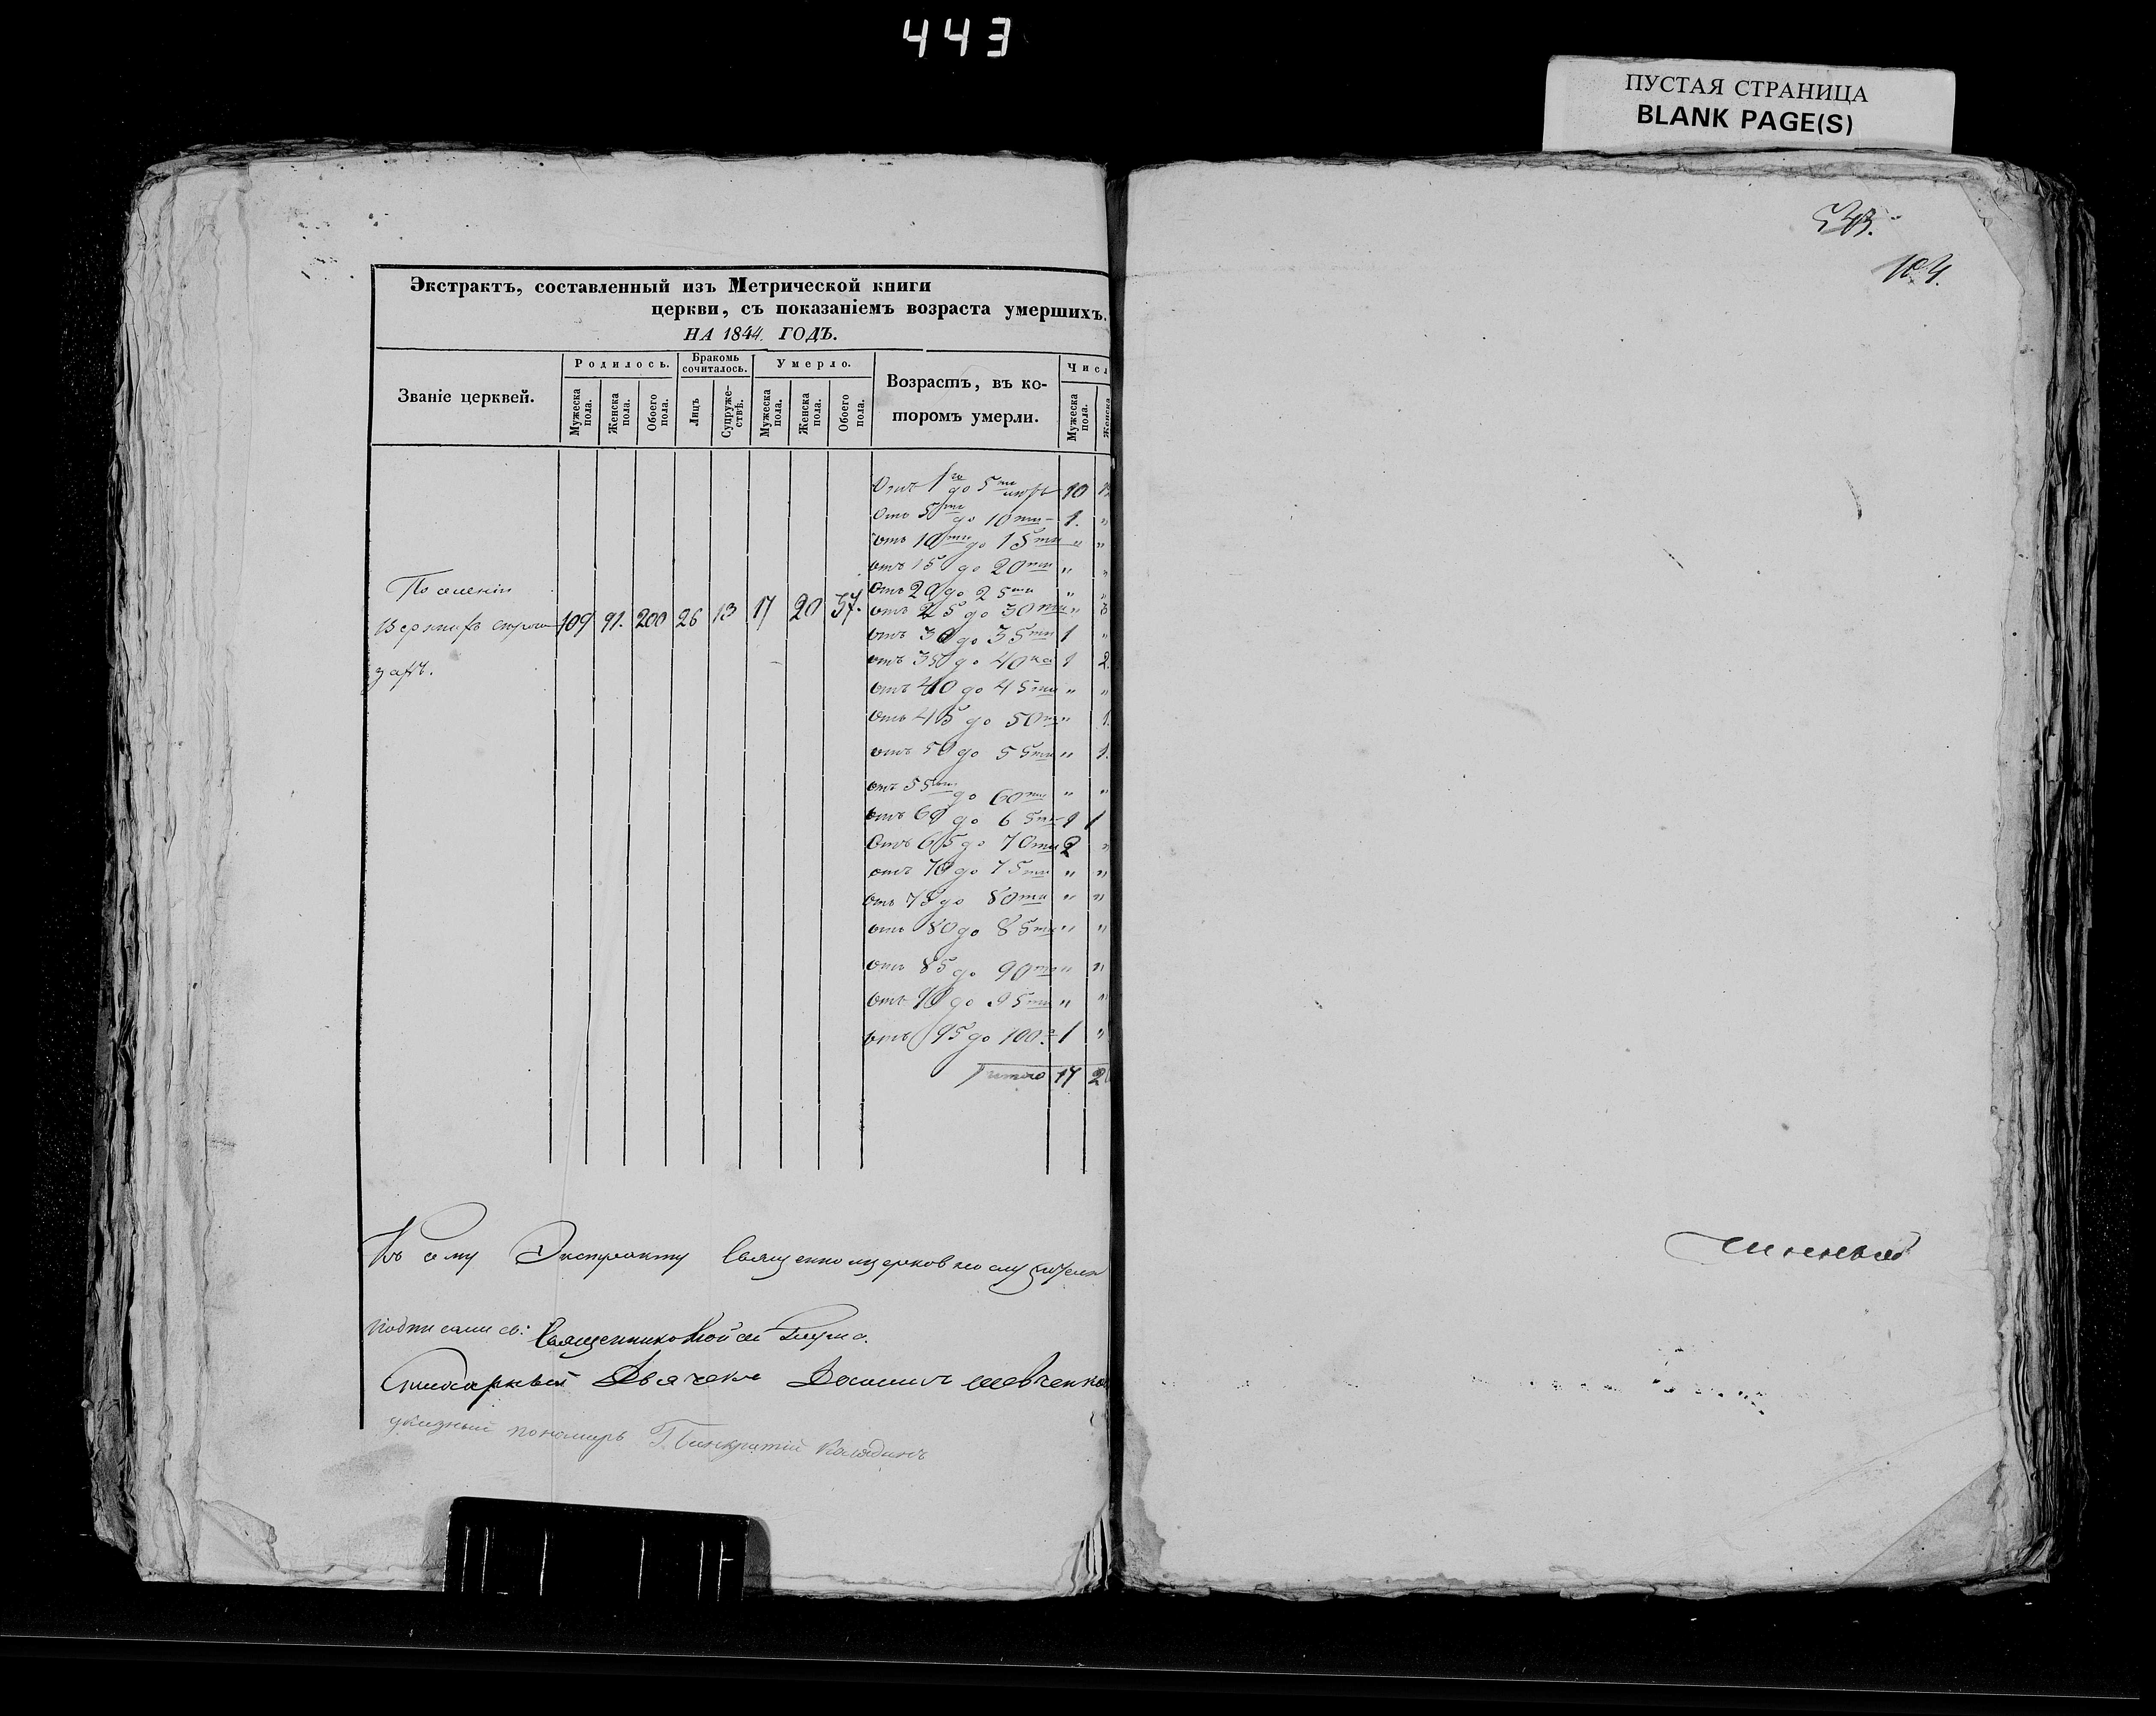 443
ПУСТАЯ СТРАНИЦА
BLANK PAGE(S)
104.
Экстрактъ, составленный изъ Метрической книги
церкви, съ показаніемъ возраста умершихъ.
НА 1844 ГОДЪ.
Званіе церквей.
Родилось.
Бракомъ сочиталось.
Умерло.
Возрастъ, въ ко-
торомъ умерли.
Числ
Мужеска пола.
Женска пола.
Обоего пола.
Лицъ
Супруже-ствъ.
Мужеска пола.
Женска пола.
Обоего пола.
Мужеска пола.
Женска
Отъ 1го до 5ти 10
Отъ 5ти до 10ти 1. "
Отъ 10ти до 15ти " "
отъ 15 до 20ти " "
отъ 20 до 25ти " "
отъ 25 до 30ти " 3
отъ 30 до 35ти 1 "
отъ 35 до 40ка 1 2.
отъ 40 до 45ти " "
отъ 45 до 50ти " 1.
отъ 50 до 55ти " 1.
отъ 55ти до 60ти " "
отъ 60 до 65ти 1 1
Отъ 65 до 70ти 2 "
отъ 70 до 75ти " "
отъ 75 до 80ти " "
отъ 80 до 85ти " "
отъ 85 до 90ти " "
отъ 90 до 95ти " "
отъ 95 до 100а 1 "
итого 17 2
Поселеніи
109 91. 200 26 13 17 20 37.
Къ сему Экстракту Священноцерковнослужители
подписались: Священникъ
Дьячекъ Шевченко
указный пономарь Панкратій